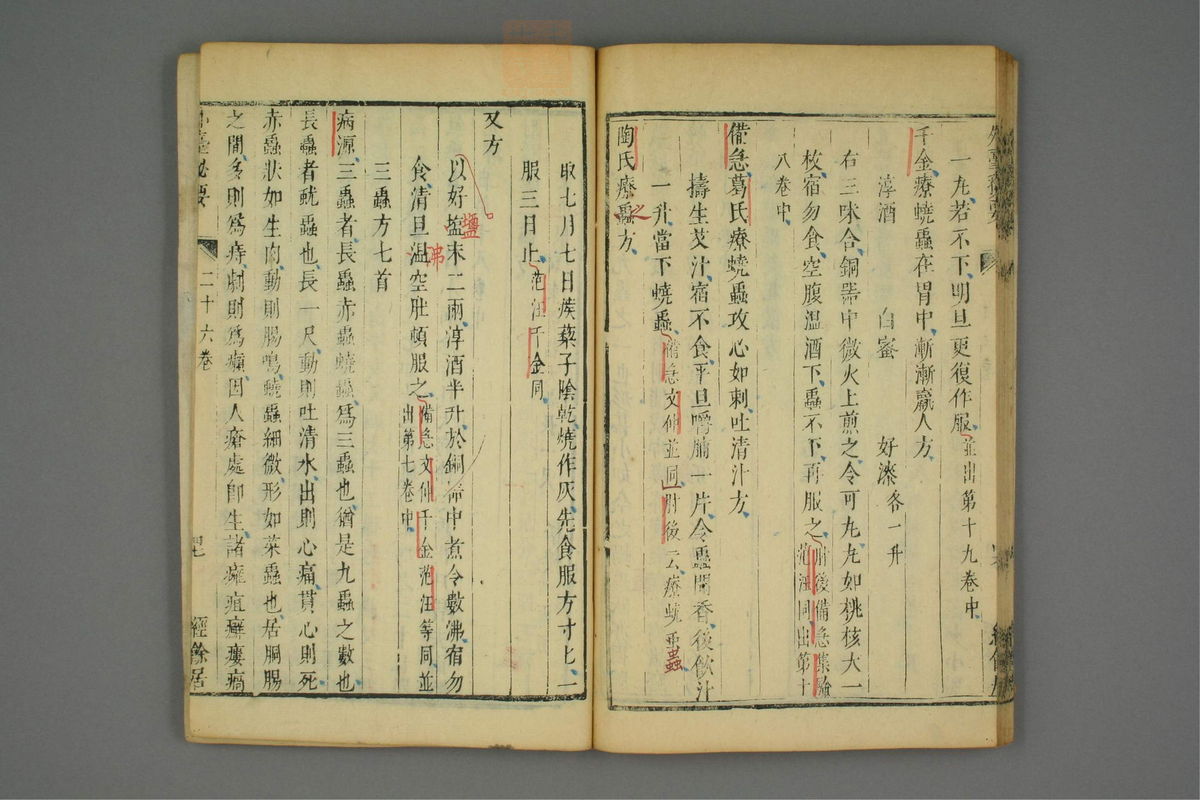 一丸若不下明旦更復作服並出第十九卷中
千金療蟯蟲在胃中漸漸羸人方
淳酒 白蜜 好漆各一升
右三味合銅器中微火上煎之令可丸丸如桃核大一
枚宿勿食空腹溫酒下蟲不下再服之肘後備急集驗
范汪同出第十
八卷中
備急葛氏療蟯蟲攻心如刺吐清汁方
擣生艾汁宿不食平旦嚼脯一片令蟲聞香後飲汁
一升當下蟯蟲備急文仲並同肘後云療蚘蟲
陶氏療蟲方
之
取七月七日蒺藜子陰乾燒作灰先食服方寸匕一
服三日止范汪千金同
又方
以好塩末二兩淳酒半升於銅器中煮令數沸宿勿
鹽
食清旦溫空肚頓服之備急文仲千金范汪等同並
出第七卷中
沸
三蟲方七首
病源三蟲者長蟲赤蟲蟯蟲爲三蟲也猶是九蟲之數也
長蟲者蚘蟲也長一尺動則吐清水出則心痛貫心則死
赤蟲狀如生肉動則腸鳴蟯蟲細微形如菜蟲也居胴腸
之間多則爲痔劇則爲癩因人瘡處卽生諸癰疽癬瘻瘑
外臺祕要 二十六卷 經餘居